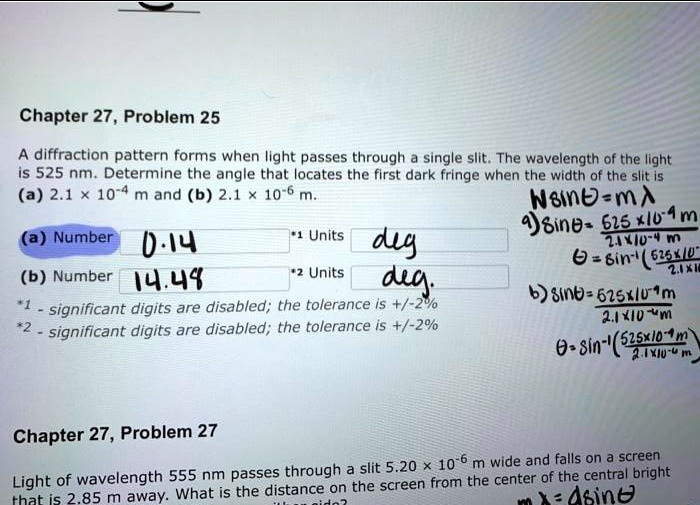 Chapter 27, Problem 25
A diffraction pattern forms when light passes through a single slit. The wavelength of the light
is 525 nm. Determine the angle that locates the first dark fringe when the width of the slit is
(a) 2.1 × 10⁻⁴ m and (b) 2.1 × 10⁻⁶ m.
Wsinθ=mλ
a) sinθ= 525 x10⁻⁹ m
2.1x10⁻⁴ m
(a) Number 0.14 *1 Units deg
θ = sin⁻¹(525x10⁻
2.1x10
(b) Number 14.48 *2 Units deg.
b) sinθ= 525x10⁻⁹m
2.1x10⁻⁶m
*1 - significant digits are disabled; the tolerance is +/-2%
*2 - significant digits are disabled; the tolerance is +/-2%
θ= sin⁻¹(525x10⁻⁹m)
2.1x10⁻⁶ m
Chapter 27, Problem 27
Light of wavelength 555 nm passes through a slit 5.20 × 10⁻⁶ m wide and falls on a screen
that is 2.85 m away. What is the distance on the screen from the center of the central bright
mλ= dsinθ